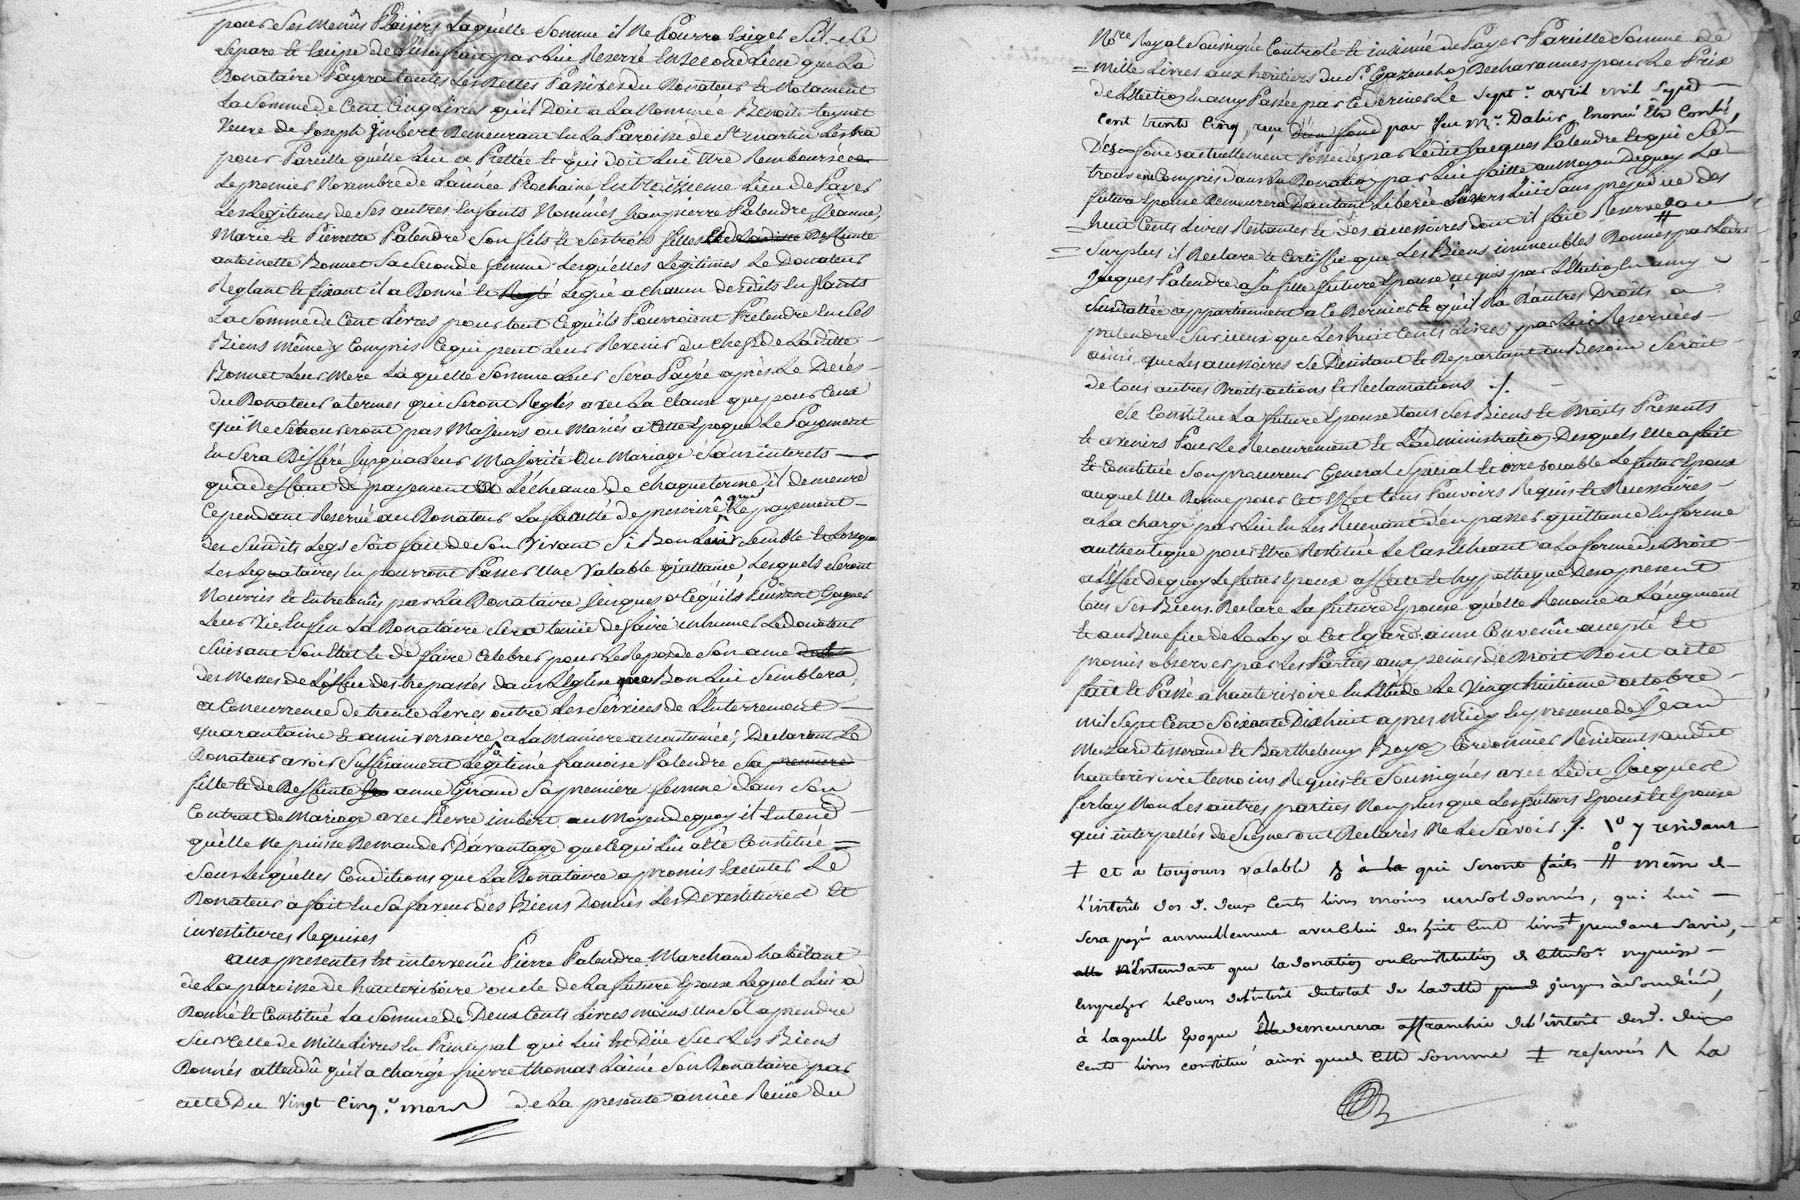 pour ses Menûs Plaisirs Laquélle Somme il Ne Pourra Exiger S'il Se
Separe et de par Lui Reservé En Second Lieu que La
Donataire Payera toutes Les Dettes Passives du Donateur et Notament
La Somme de Cent Cinq Livres qu'il Doit a La Nommée Benoite
Veuve de Joseph Jmbert Demeurant En La Paroisse de St martin Lestra
pour Pareille qu'elle Lui a Prettée et qui Doit Lui Etre Remboursée
Le premier Novembre de L'année Prochaine Entroizieme Lieu de Payer
Les Legitimes de Ses autres Enfants Nommés Jeanpierre Palendre, Jéanne,
Marie et Pierrette Palendre Son fils et Ses trois filles et de Deffunte
antoinette Bonnet Sa Seconde femme Lesquelles Legitimes Le Donateur
Reglant et fixant il a Donné et Reglé Legué a Chacun desdits Enfants
La Somme de Cent Livres pour tout Ce qu'ils Pourroient Prétendre En Ses
Biens même y Compris Ce qui peut Leur Revenir du Chef de Laditte
Bonnet Leur Mere Laquélle Somme Leur Sera Payée après Le Décés
du Donateur a termes qui Seront Reglés avec La Clause que pour Ceux
qui Ne Se trouveront pas Majeurs ou Mariés a Cette Epoque Le Payement
En Sera Differé Jusqu'a Leur Majorité ou Mariage Sans interets
qu'a deffaut de payement a L'écheance de Chaque terme il demeure
Cependant Reservé au Donateur La faculté de prescrire que Le payement
des Susdits Legs Soit fait de Son Vivant Si Bon Lui Semble et Lorsque
Les Legataires En pourront Passer Une Valable quittance Lesquels Seront
Nourris et Entretenûs par La Donataire Jusques a Ce qu'ils Puissent Gagner
Leur Vie, Enfin La Donataire Sera tenüe de faire inhumer Le donateur
Suivant Son Etat et de faire Celebrer pour Le Repos de Son ame
des Messes de L'office des trepassés dans L'église que Bon Lui Semblera
a Concurrence de trente Livres outre Les Services de L'enterrement
quarantaine et anniversaire a La Maniere accoutumée; Declarant Le
Donateur avoir Suffisament Légitimé francoise Palendre Sa premiere
fille et de Deffunte anne Giraud Sa premiere femme dans Son
Contrat de Mariage avec Pierre imbert au Moyen de quoy il Entend
qu'elle Ne puisse Demander D'avantage que Ce qui Lui a été Constitué
Sous Lesquélles Conditions que La Donataire a promis Executer Le
Donateur a fait En Sa faveur des Biens Donnés Les Devestitures et
investitures Requises
aux presentes Est intervenû Pierre Palendre Marchand habitant
de La paroisse de hauterivoire oncle de La future Epouse Lequel Lui a
Donné et Constitué La Somme de Deux Cents Livres moins Un Sol a prendre
Sur Celle de Mille Livres En Principal qui Lui Est Düe Sur Les Biens
Donnés attendû qu'il a Chargé pierre thomas L'ainé Son Donataire par
acte Du Vingt Cinq mars de La presente année Reçüe du
Nore Royal Soussigné Controlé et insinué de Payer Pareille Somme de
Mille Livres aux héritiers du Sr. Dechavannes pour Le Prix
de L'Election En amy Passée par Le dernier Le Sept avril mil Sept
Cent trente Cinq, reçu par feu Me. Dalin, Enoncé Etre Controllé,
fonds actuellement Possedés par Ledit Jacques Palendre Et qui Se
trouvent Compris dans La Donation par Lui faitte au Moyen de quoy La
future Epouse Demeurera D'autant Libérée Envers Lui Sans prejudice des
huit Cents Livres Restantes et Des accessoires dont il fait Reserve au
Surplus il Declare et Certiffie que Les Biens immeubles Donnés par Ledit
Jacques Palendre a Sa fille future Epouse acquis par L'Election En amy
Susdattée appartiennent a Ce Dernier et qu'il N'a D'autres Droits a
pretendre Sur iceux que Les huit Cents Livres par Lui Reservées
ainsi que Les accessoires Se Desistant et Departant au Besoin Seroit
de tous autres Droits actions et Reclamations ./.
Se Constitue La future Epouse tous Ses Biens et Droits Presents
et avenirs Pour Le Recouvrement et L'administration Desquels Elle a fait
et Constitué Son procureur General Special et irrevocable Le futur Epoux
auquel Elle Donne pour Cet Effet tous Pouvoirs Requis et Necessaires
a La charge par Lui En Les Recevant d'en passer quittance En forme
authentique pour Etre Restitué Le Cas Echeant a La forme du Droit
a L'effet de quoy Le futur Epoux affecte et hypotheque Des a present
tous Ses Biens. Declare La future Epouse qu'elle Renonce a L'augment
et au Benefice de La Loy a Cet Egard. ainsi Convenû accepté et
promis observer par Les Parties aux peines de Droit Dont acte
fait et Passé a hauterivoire En L'Etude Le Vingt huitieme octobre
mil Sept Cent Soixante Dix huit apres Midy En presence de Jean
Musard tisserand et Barthelemy Cordonnier Residants audit
hauterivoire temoins Requis et Soussignés avec Ledit Jacques
fertay Non Les autres parties Non plus que Les futurs Epoux et Epouse
qui interpellés de Signer ont Declarés Ne Le Savoir ./. y residant
‡ et a toujours valable à la qui seront faits # même de
l'intérêt des d. deux Cents livres moins un sol donnés, qui lui
sera payé annuellement avec celui des huit Cent livres ‡ pendant sa vie,
elle N'Entendant que la donation ou Constitution de n'puisse
empecher le cours de l'intérêt du total de laditte jusques à Son décès,
à laquelle Epoque Elle demeurera affranchie de l'intérêt desd. deux
cents livres constitué ainsi que de Cette Somme ‡ reservés ^ La